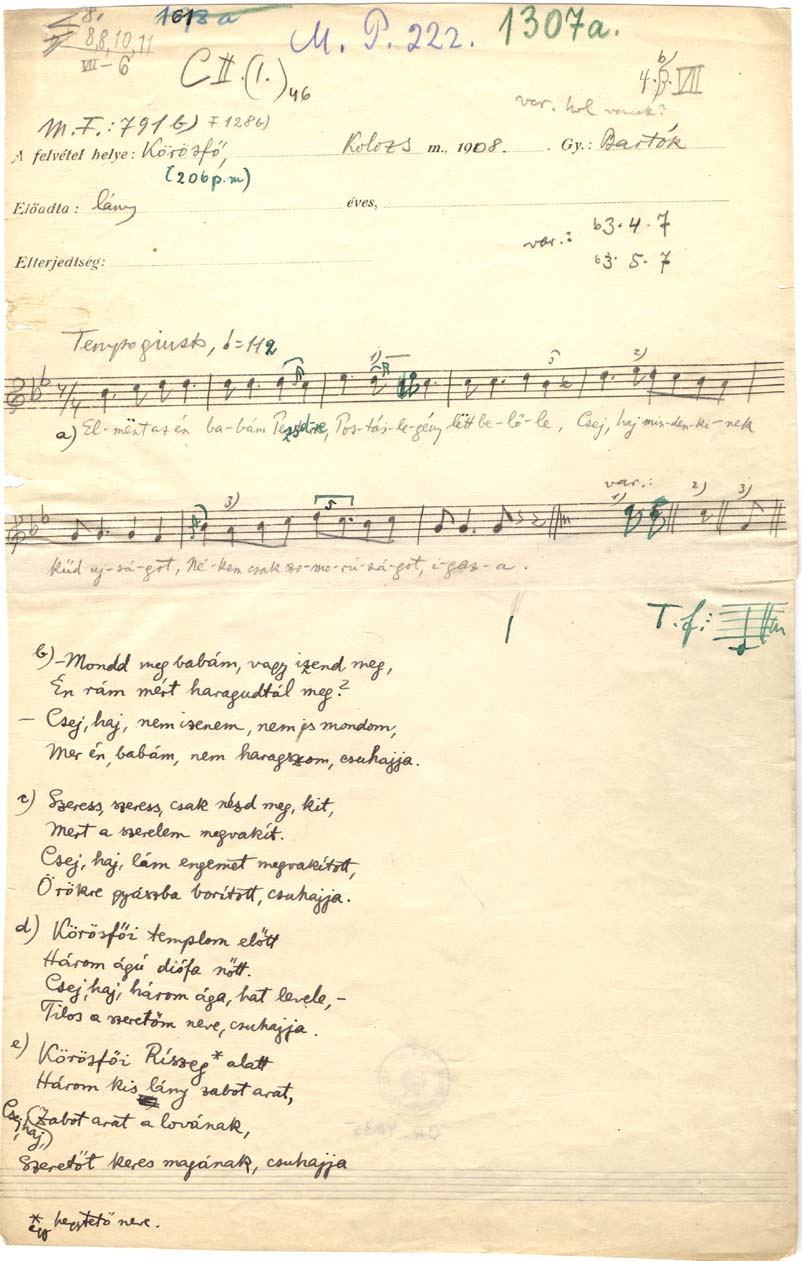 8.
1618a
8,8,10,11
VII - 6
M. P. 222.
1307a.
C II. (1.) 46
b)
4. β. VII
var. hol vannak?
M.F.: 791 b) F. 128b)
A felvétel helye: Körösfő, Kolozs m., 1908. Gy.: Bartók
(206 p.m)
Előadta: lány éves,
var.: b3. 4. 7
b3. 5. 7
Elterjedtség:
Tempo giusto, = 112
1) 5 2)
4/4
a) El-mënt az én ba-bám Pesd-re, Pos-tás-le-gény lëtt be-lő-le, Csej, haj min-den-ki-nek
3) 5 var.: 1) 2) 3)
küd uj-sá-got, Né-kem csak szo-mo-rú-sá-got, i-gaz-a.
T. f.:
b) - Mondd meg babám, vagy izend meg,
Én rám mért haragudtál meg?
- Csej, haj, nem izenem, nem is mondom,
Mer én, babám, nem haragszom, csuhajja.
c) Szeress, szeress, csak nézd meg, kit,
Mert a szerelem megvakít.
Csej, haj, lám engemet megvakított,
Örökre gyászba borított, csuhajja.
d) Körösfői templom előtt
Három ágú diófa nőtt.
Csej, haj, három ága, hat levele, -
Tilos a szeretőm neve, csuhajja.
e) Körösfői Ríszeg* alatt
Három kis lány zabot arat,
(Csej, haj,) Zabot arat a lovának,
Szeretőt keres magának, csuhajja
* egy hegytető neve.